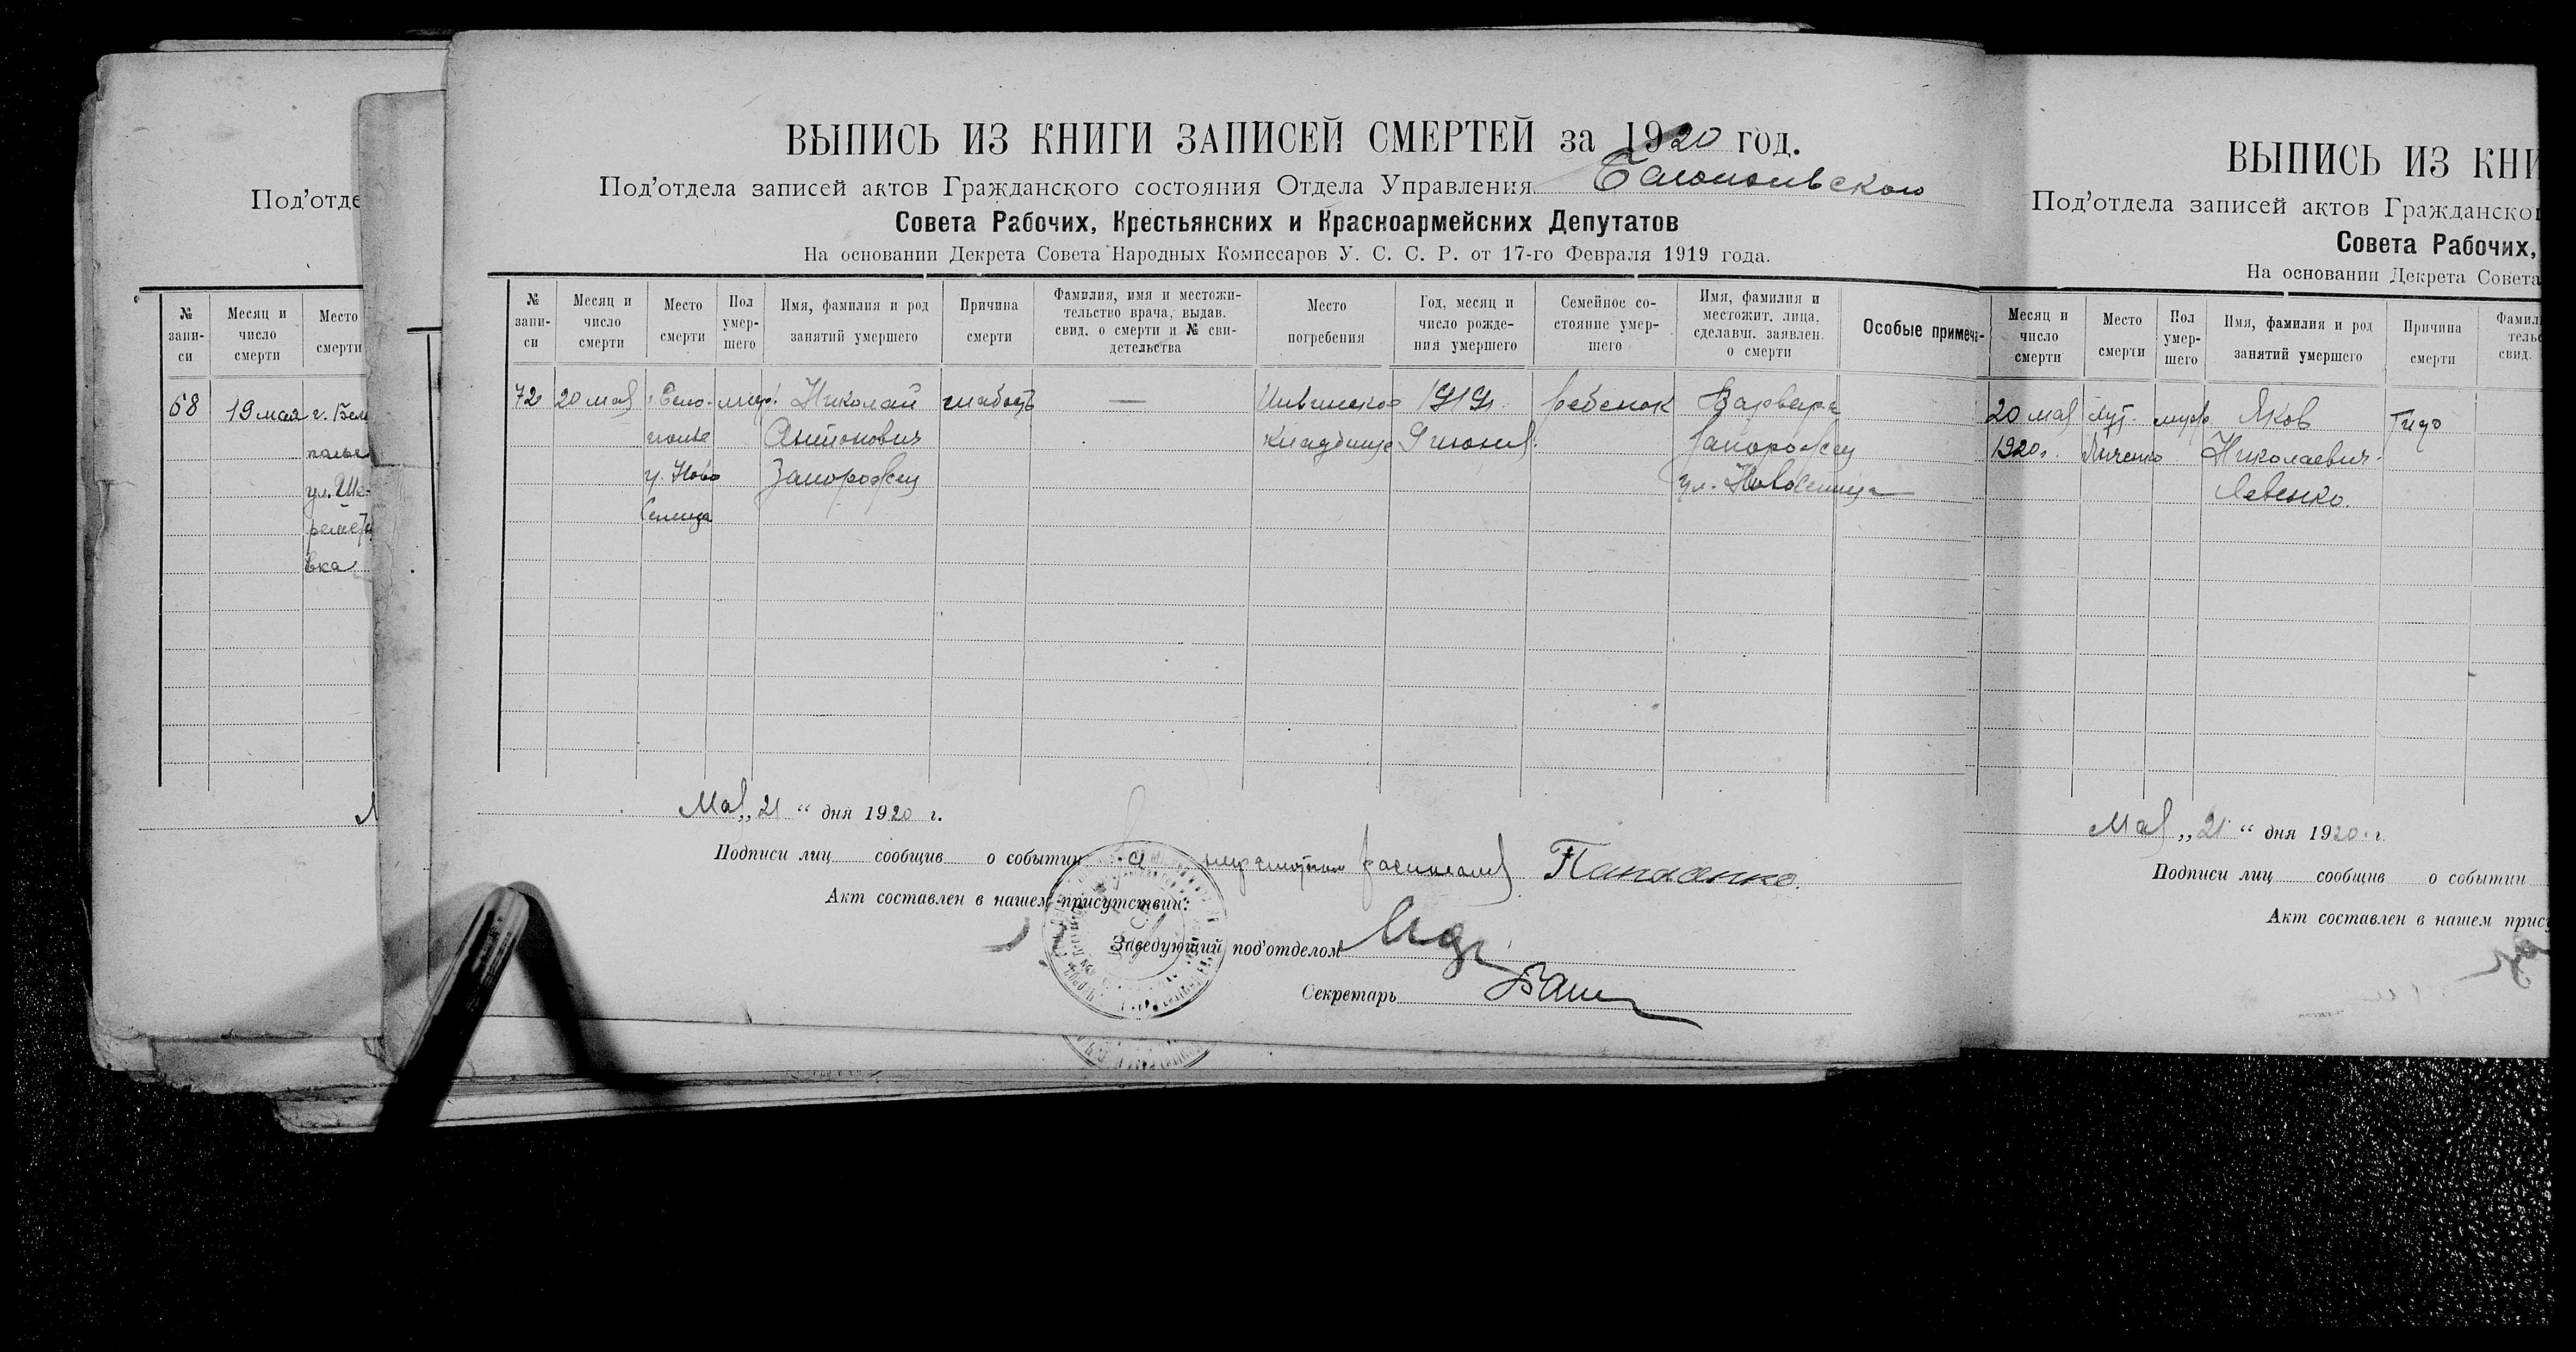 Под'отде
№ запи- си
Месяц и число смерти
Место смерти
68
19 мая
г. Бело
полье
ул. Ше-
ремет
вка
ВЫПИСЬ ИЗ КНИГИ ЗАПИСЕЙ СМЕРТЕЙ за 1920 год.
Под'отдела записей актов Гражданского состояния Отдела Управления Белопольского
Совета Рабочих, Крестьянских и Красноармейских Депутатов
На основании Декрета Совета Народных Комиссаров У. С. С. Р. от 17-го Февраля 1919 года.
№ запи- си
Месяц и число смерти
Место смерти
Пол умер- шего
Имя, фамилия и род занятий умершего
Причина смерти
Фамилия, имя и местожи- тельство врача, выдав. свид. о смерти и № сви- детельства
Место погребения
Год, месяц и число рожде- ния умершего
Семейное со- стояние умер- шего
Имя, фамилия и местожит. лица, сделавш. заявлен. о смерти
Особые примеча-
72 20 мая г. Бело- муж. Николай слабость — 1919 ребенок Варвара
полье Антонович кладбище 9 июня Запорожец
у. Ново Запорожец ул. Новоселица
Селица
Мая „ 21 “ дня 1920 г.
Подписи лиц сообщив о событии За неграмотного расписался Панасенко.
Акт составлен в нашем присутствии:
Заведующий под'отделом
Секретарь
ВЫПИСЬ ИЗ КНИ
Под'отдела записей актов Гражданског
Совета Рабочих,
На основании Декрета Совета
Месяц и число смерти
Место смерти
Пол умер- шего
Имя, фамилия и род занятий умершего
Причина смерти
Фамил тельс свид.
20 мая хут. муж. Яков
1920 г. Николаевич
Левенко.
Мая „ 21 “ дня 1920 г.
Подписи лиц сообщив о событии
Акт составлен в нашем прису